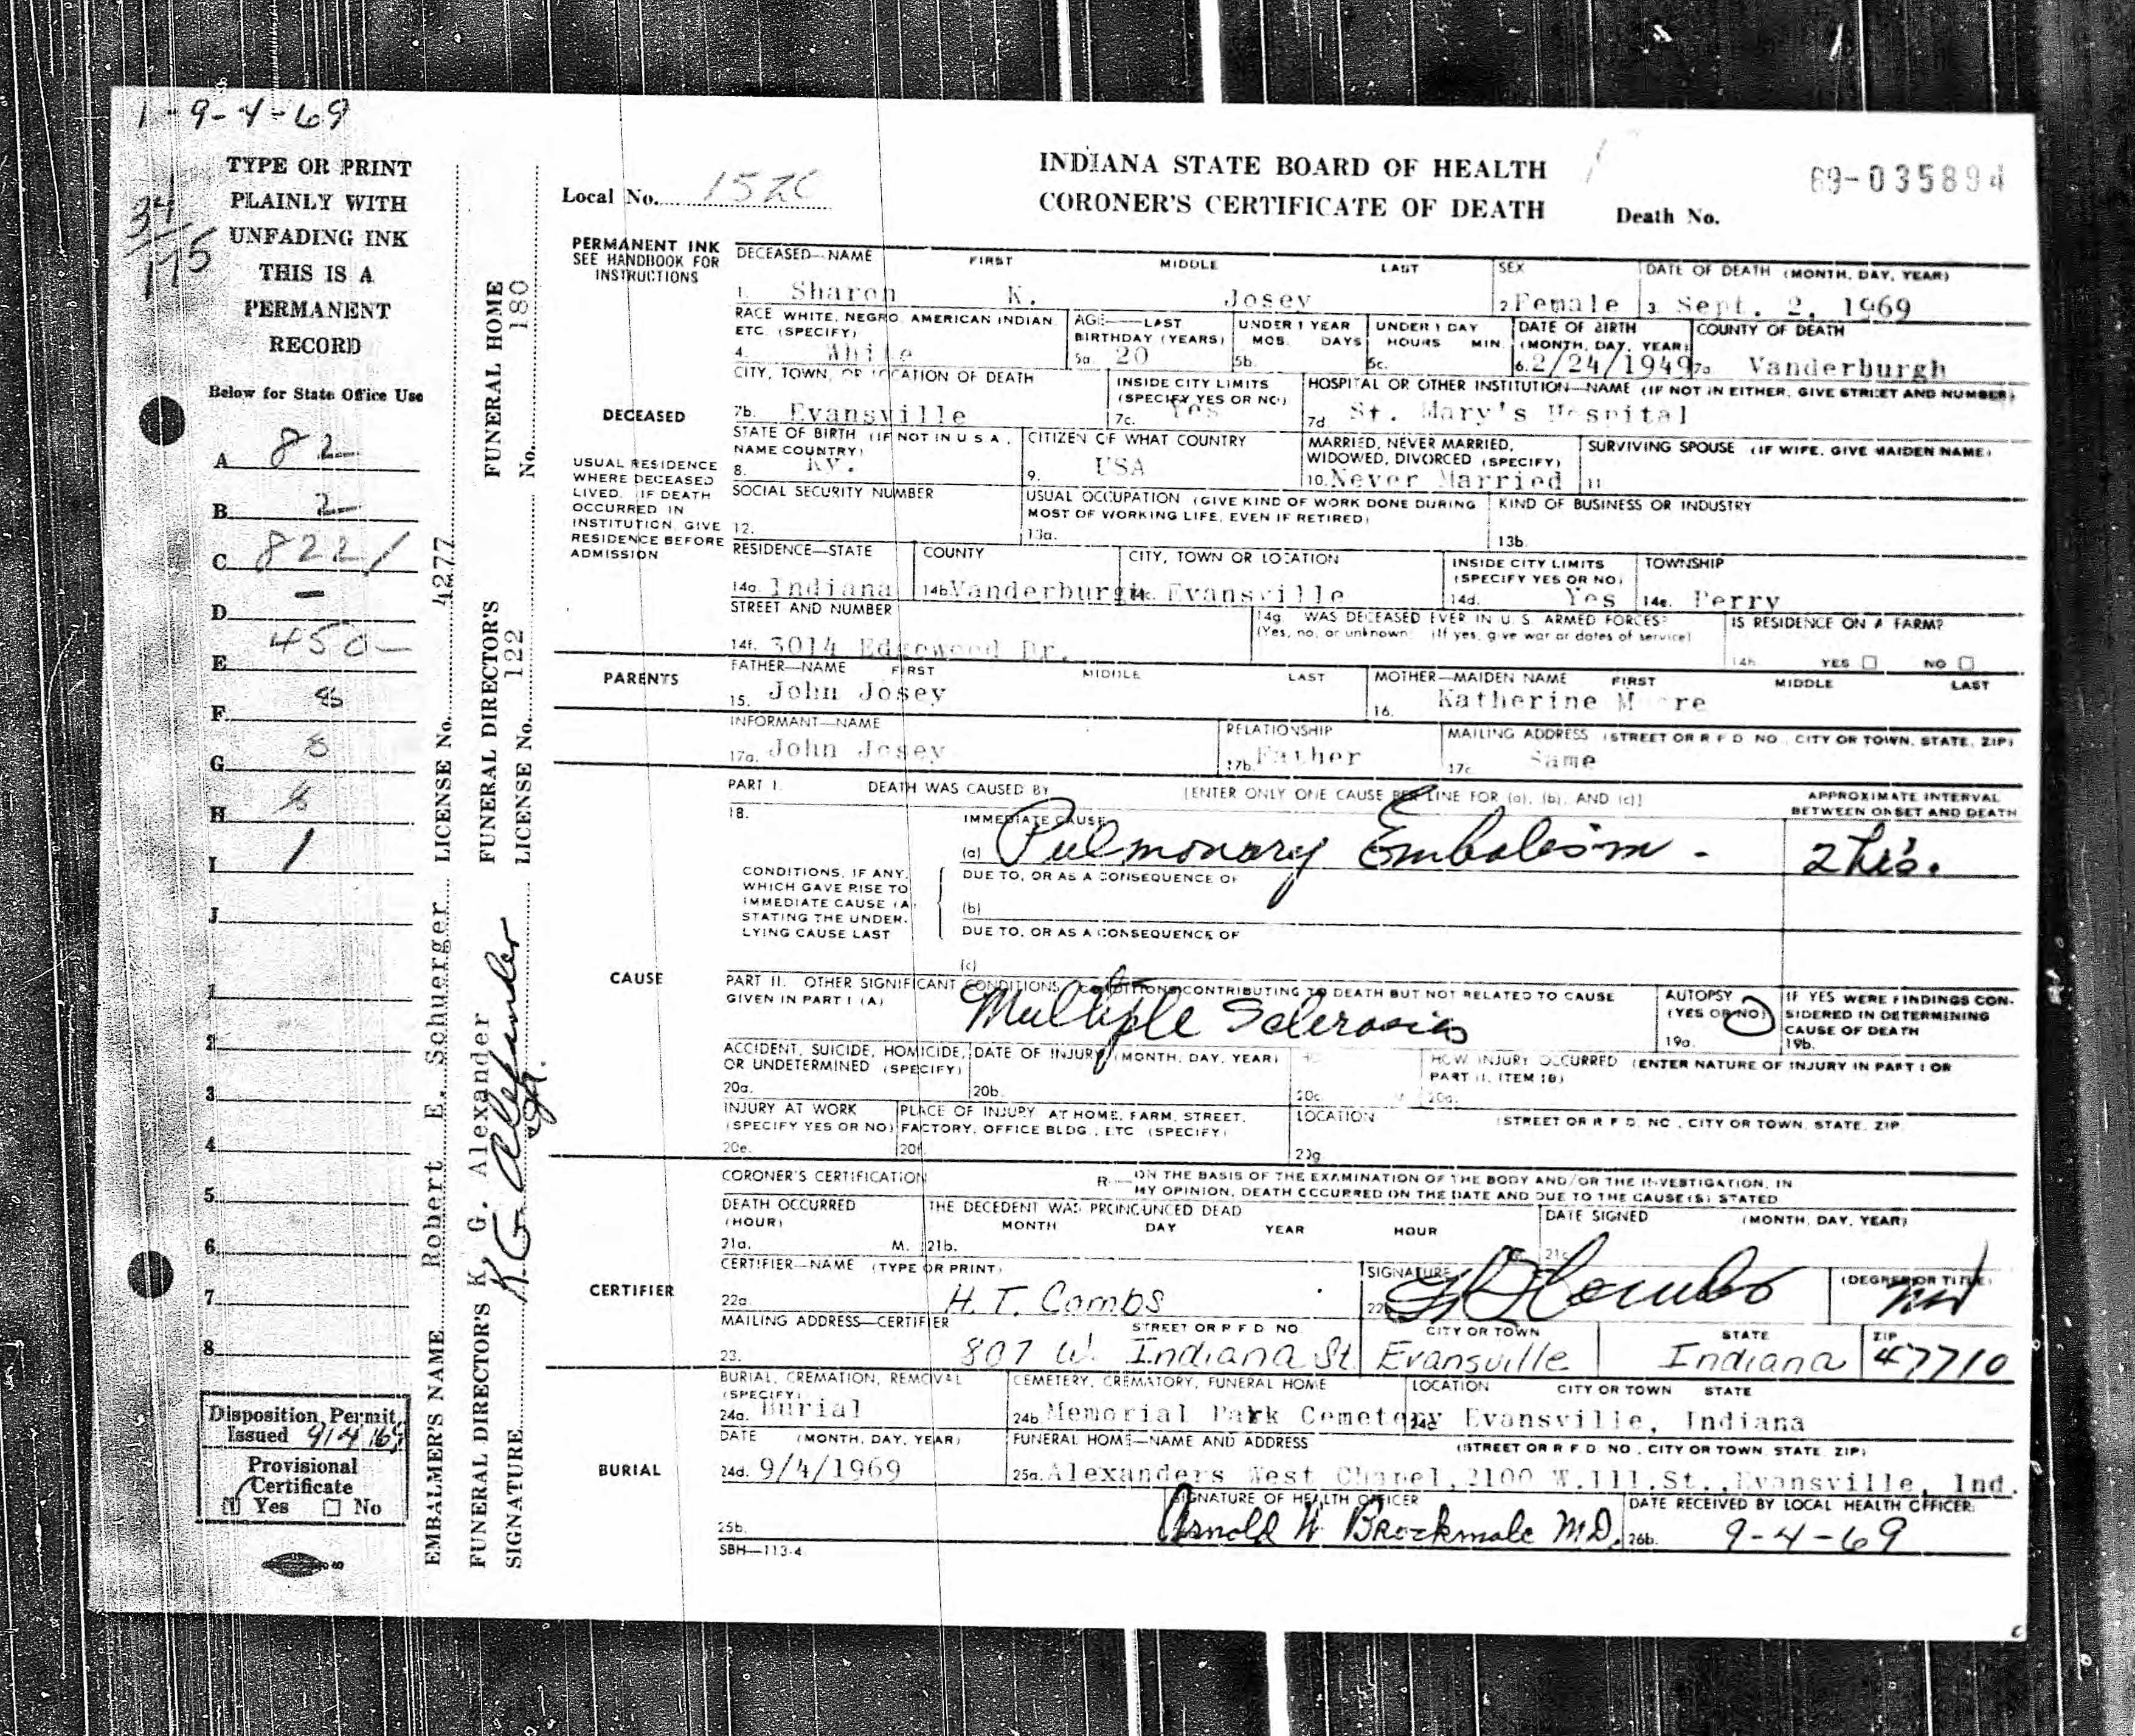 1-9-4-69
TYPE OR PRINT
PLAINLY WITH
UNFADING INK
THIS IS A
PERMANENT
RECORD
34/175
Below for State Office Use
A 82
B 2
C 822/
D –
E 450–
F 8
G 8
H 8
I 1
J
1
2
3
4
5
6
7
8
Disposition Permit
Issued 9/4/69
Provisional
Certificate
Yes ☐ No
EMBALMER'S NAME Robert E. Schuerger LICENSE No. 4277
FUNERAL DIRECTOR'S K. G. Alexander FUNERAL DIRECTOR'S FUNERAL HOME
SIGNATURE K G Alexander LICENSE No. 122 No. 180
Local No. 152C
INDIANA STATE BOARD OF HEALTH
CORONER'S CERTIFICATE OF DEATH
Death No.
69-035894
PERMANENT INK
SEE HANDBOOK FOR
INSTRUCTIONS
DECEASED—NAME FIRST MIDDLE LAST SEX DATE OF DEATH (MONTH, DAY, YEAR)
1. Sharon K. Josey 2 Female 3. Sept. 2, 1969
RACE WHITE, NEGRO, AMERICAN INDIAN, ETC. (SPECIFY) AGE—LAST BIRTHDAY (YEARS) UNDER 1 YEAR MOS. DAYS UNDER 1 DAY HOURS MIN. DATE OF BIRTH (MONTH, DAY, YEAR) COUNTY OF DEATH
4. White 5a. 20 5b. 5c. 6. 2/24/1949 7a. Vanderburgh
DECEASED
CITY, TOWN, OR LOCATION OF DEATH INSIDE CITY LIMITS (SPECIFY YES OR NO) HOSPITAL OR OTHER INSTITUTION—NAME (IF NOT IN EITHER, GIVE STREET AND NUMBER)
7b. Evansville 7c. Yes 7d. St. Mary's Hospital
STATE OF BIRTH (IF NOT IN U S A, NAME COUNTRY) CITIZEN OF WHAT COUNTRY MARRIED, NEVER MARRIED, WIDOWED, DIVORCED (SPECIFY) SURVIVING SPOUSE (IF WIFE, GIVE MAIDEN NAME)
8. Ky. 9. USA 10. Never Married 11
USUAL RESIDENCE
WHERE DECEASED
LIVED. IF DEATH
OCCURRED IN
INSTITUTION, GIVE
RESIDENCE BEFORE
ADMISSION
SOCIAL SECURITY NUMBER USUAL OCCUPATION (GIVE KIND OF WORK DONE DURING MOST OF WORKING LIFE, EVEN IF RETIRED) KIND OF BUSINESS OR INDUSTRY
12. 13a. 13b.
RESIDENCE—STATE COUNTY CITY, TOWN OR LOCATION INSIDE CITY LIMITS (SPECIFY YES OR NO) TOWNSHIP
14a. Indiana 14b Vanderburgh 14c. Evansville 14d. Yes 14e. Perry
STREET AND NUMBER 14g. WAS DECEASED EVER IN U. S. ARMED FORCES? (Yes, no, or unknown) (If yes, give war or dates of service) IS RESIDENCE ON A FARM?
14f. 3014 Edgewood Dr. 14h YES ☐ NO ☐
PARENTS
FATHER—NAME FIRST MIDDLE LAST MOTHER—MAIDEN NAME FIRST MIDDLE LAST
15. John Josey 16. Katherine Moore
INFORMANT—NAME RELATIONSHIP MAILING ADDRESS (STREET OR R F D NO., CITY OR TOWN, STATE, ZIP)
17a. John Josey 17b. Father 17c. Same
CAUSE
PART I. DEATH WAS CAUSED BY [ENTER ONLY ONE CAUSE PER LINE FOR (a), (b), AND (c)] APPROXIMATE INTERVAL BETWEEN ONSET AND DEATH
18. IMMEDIATE CAUSE
(a) Pulmonary Embolism - 2 hrs.
CONDITIONS, IF ANY,
WHICH GAVE RISE TO
IMMEDIATE CAUSE (A)
STATING THE UNDER-
LYING CAUSE LAST
DUE TO, OR AS A CONSEQUENCE OF
(b)
DUE TO, OR AS A CONSEQUENCE OF
(c)
PART II. OTHER SIGNIFICANT CONDITIONS CONDITIONS CONTRIBUTING TO DEATH BUT NOT RELATED TO CAUSE GIVEN IN PART I (A)
Multiple Sclerosis
AUTOPSY (YES OR NO) 19a.
IF YES WERE FINDINGS CONSIDERED IN DETERMINING CAUSE OF DEATH 19b.
ACCIDENT, SUICIDE, HOMICIDE, OR UNDETERMINED (SPECIFY) DATE OF INJURY (MONTH, DAY, YEAR) HOW INJURY OCCURRED (ENTER NATURE OF INJURY IN PART I OR PART II, ITEM 18)
20a. 20b. 20c. 20d.
INJURY AT WORK (SPECIFY YES OR NO) PLACE OF INJURY AT HOME, FARM, STREET, FACTORY, OFFICE BLDG., ETC (SPECIFY) LOCATION (STREET OR R F D NO., CITY OR TOWN, STATE, ZIP
20e. 20f. 20g
CERTIFIER
CORONER'S CERTIFICATION ON THE BASIS OF THE EXAMINATION OF THE BODY AND/OR THE INVESTIGATION, IN MY OPINION, DEATH OCCURRED ON THE DATE AND DUE TO THE CAUSE(S) STATED
DEATH OCCURRED (HOUR) THE DECEDENT WAS PRONOUNCED DEAD MONTH DAY YEAR HOUR DATE SIGNED (MONTH, DAY, YEAR)
21a. M. 21b. 21c
CERTIFIER—NAME (TYPE OR PRINT) SIGNATURE (DEGREE OR TITLE)
22a H. T. Combs 22b Combs MD
MAILING ADDRESS—CERTIFIER STREET OR R F D NO CITY OR TOWN STATE ZIP
23. 807 W. Indiana St Evansville Indiana 47710
BURIAL
BURIAL, CREMATION, REMOVAL (SPECIFY) CEMETERY, CREMATORY, FUNERAL HOME LOCATION CITY OR TOWN STATE
24a. Burial 24b. Memorial Park Cemetery 24c Evansville, Indiana
DATE (MONTH, DAY, YEAR) FUNERAL HOME—NAME AND ADDRESS (STREET OR R F D NO., CITY OR TOWN STATE ZIP)
24d. 9/4/1969 25a. Alexanders West Chapel, 2100 W. Ill. St., Evansville, Ind.
SIGNATURE OF HEALTH OFFICER DATE RECEIVED BY LOCAL HEALTH OFFICER
25b. Arnold W Brockmole M.D. 26b. 9-4-69
SBH—113-4